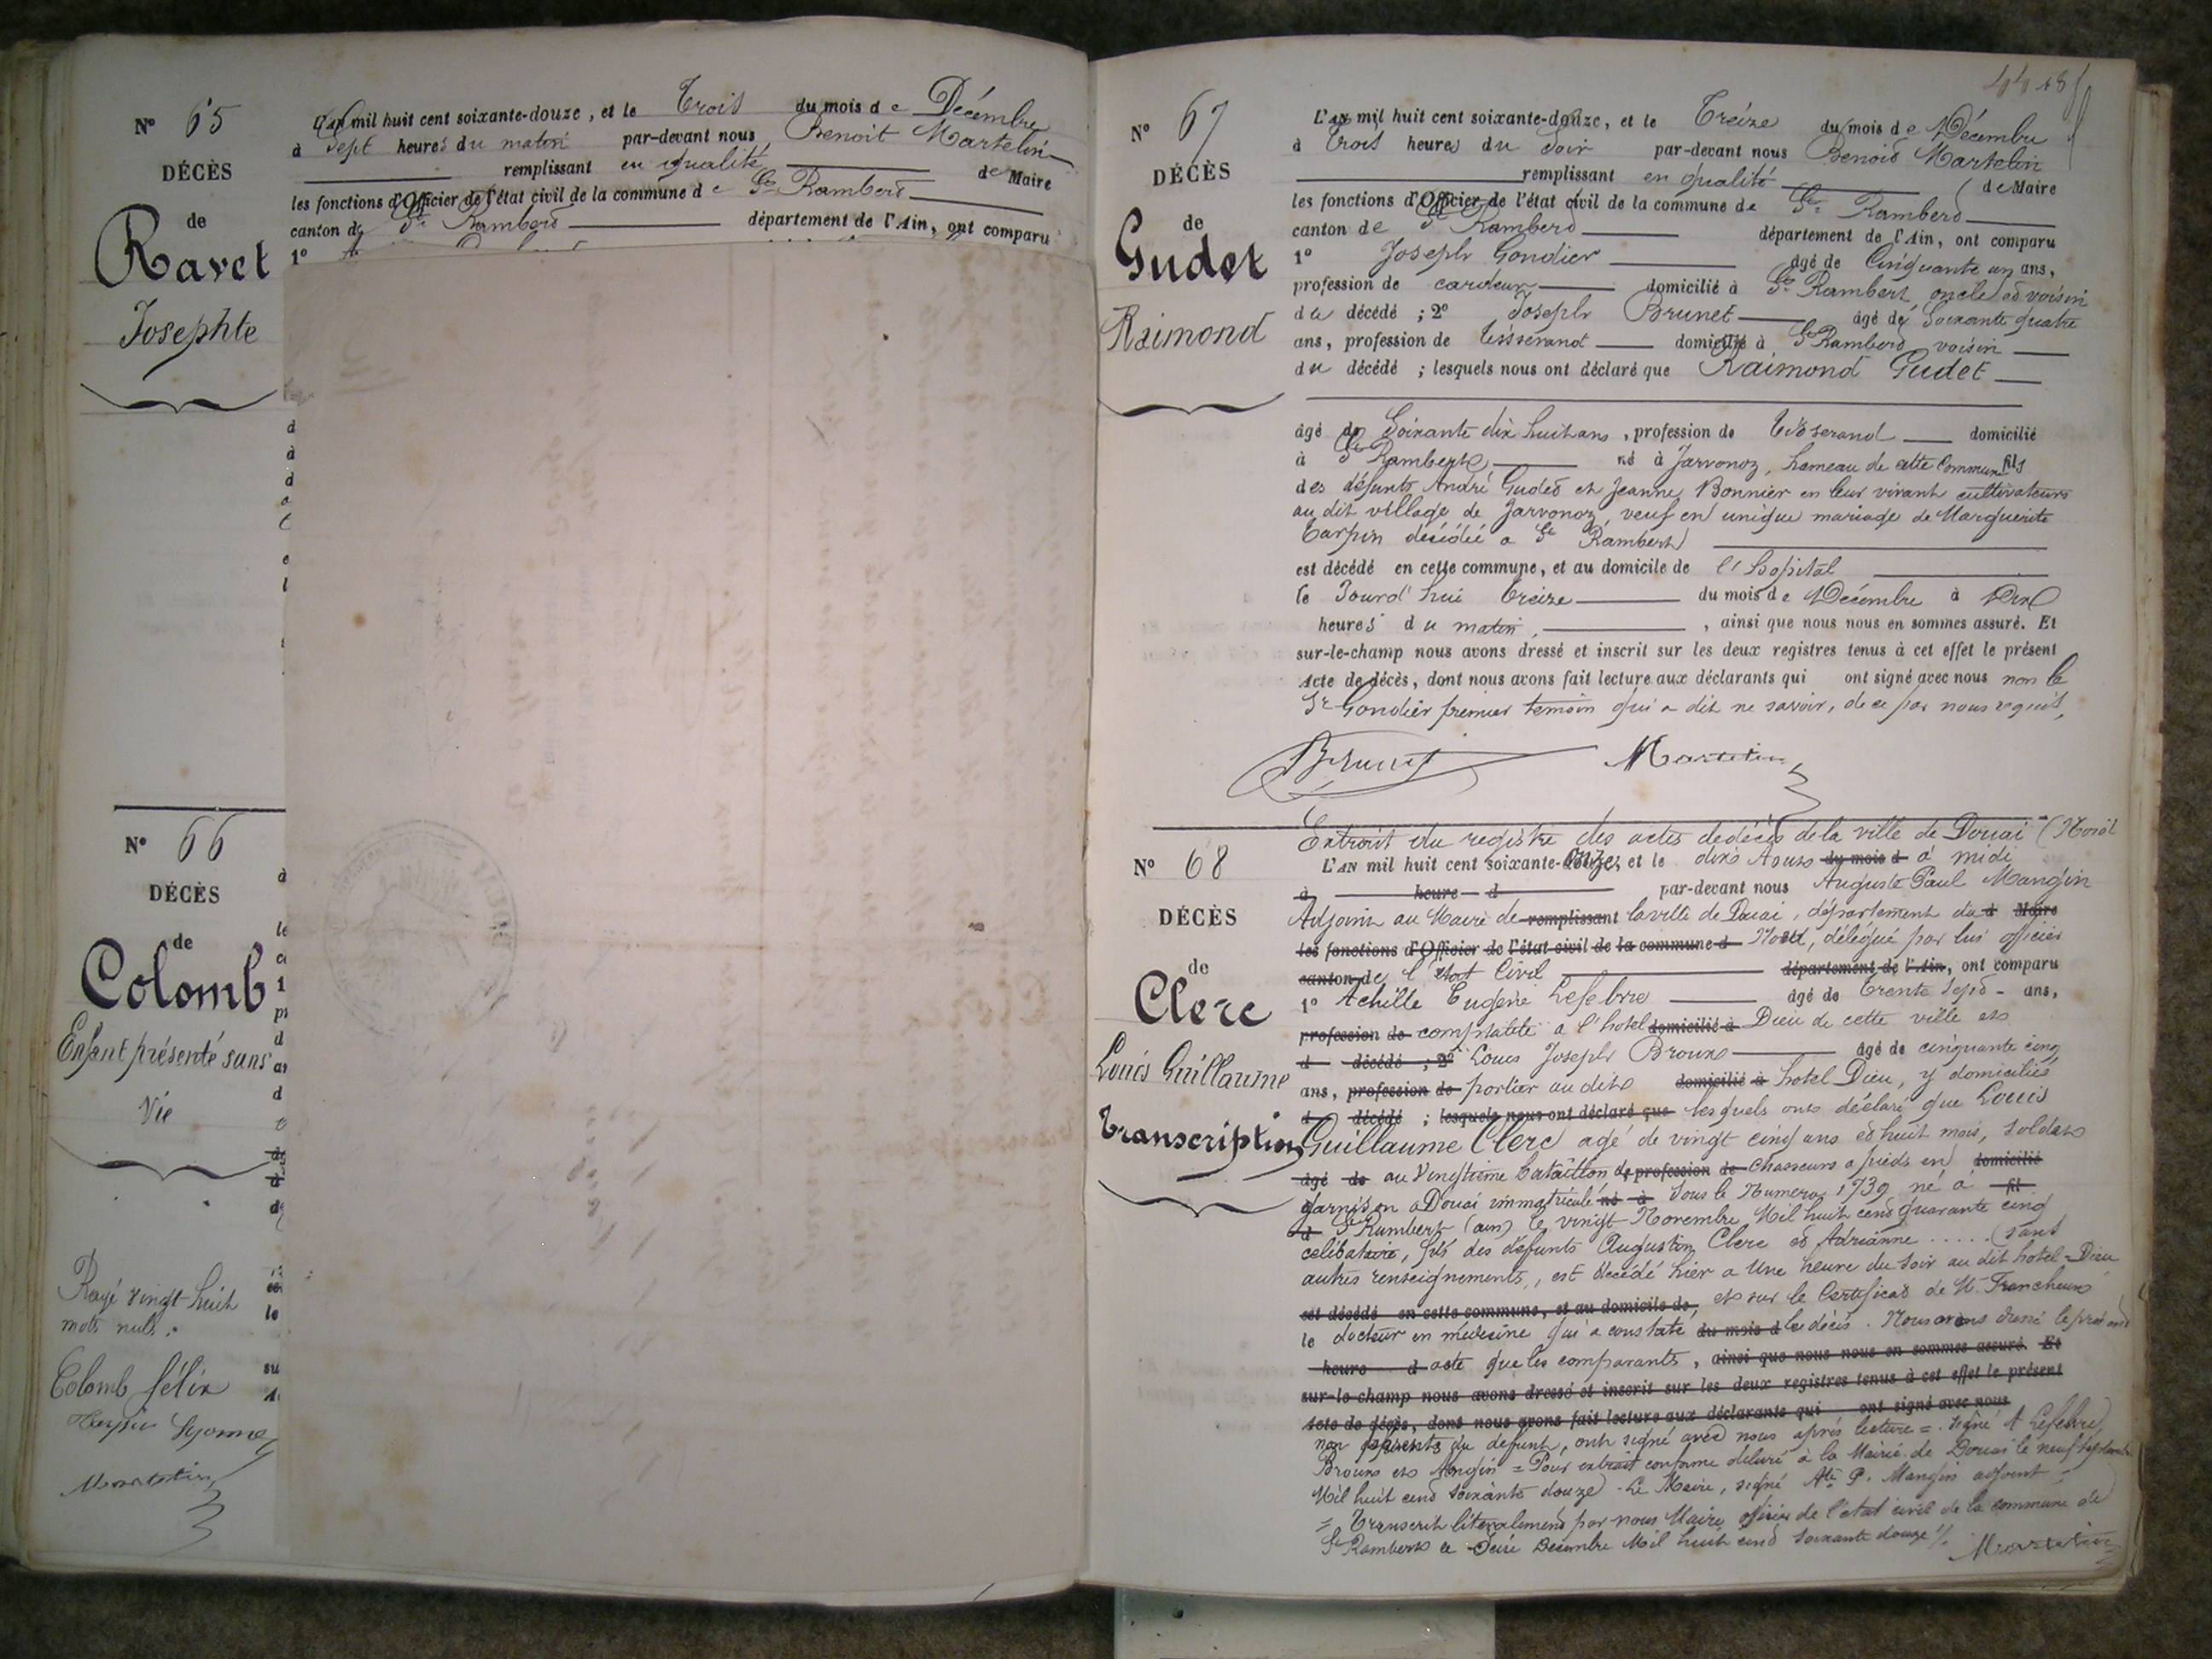 N° 65
DÉCÈS
de
Ravet
Josephte
L'AN mil huit cent soixante-douze, et le Trois du mois de Décembre
à Sept heures du matin par-devant nous Benoit Martelin
remplissant en qualité de Maire
les fonctions d'Officier de l'état civil de la commune de St Rambert
canton de St Rambert département de l'Ain, ont comparu
1°
N° 66
DÉCÈS
de
Colomb
Enfant présenté sans
Vie
Rayé vingt-huit
mots nuls.
Colomb félix
Martelin
N° 67
DÉCÈS
de
Gudet
Raimond
L'AN mil huit cent soixante-douze, et le Treize du mois de Décembre
à Trois heures du Soir par-devant nous Benoit Martelin
remplissant en qualité de Maire
les fonctions d'Officier de l'état civil de la commune de St Rambert
canton de St Rambert département de l'Ain, ont comparu
1° Joseph Gondier âgé de Cinquante un ans,
profession de cardeur domicilié à St Rambert, oncle et voisin
du décédé ; 2° Joseph Brunet âgé de Soixante quatre
ans, profession de tisserand domicilié à St Rambert voisin
du décédé ; lesquels nous ont déclaré que Raimond Gudet
âgé de Soixante dix huit ans, profession de tisserand domicilié
à St Rambert né à Javornoz, hameau de cette Commune fils
des défunts André Gudet et Jeanne Bonnier en leur vivant cultivateurs
au dit village de Javornoz, veuf en unique mariage de Marguerite
Carpin décédée a St Rambert
est décédé en cette commune, et au domicile de l'hopital
le Jourd'hui treize du mois de Décembre à Dix
heures du matin, ainsi que nous nous en sommes assuré. Et
sur-le-champ nous avons dressé et inscrit sur les deux registres tenus à cet effet le présent
Acte de décès, dont nous avons fait lecture aux déclarants qui ont signé avec nous non le
Sr Gondier premier temoin qui a dit ne savoir, de ce par nous requis,
Brunet Martelin
Extrait du registre des actes de décès de la ville de Douai (Nord
N° 68
DÉCÈS
de
Clerc
Louis Guillaume
Transcription
L'AN mil huit cent soixante-onze, et le dix Aout du mois d à midi
à heure d par-devant nous Auguste Paul Mangin
Adjoint au Maire de remplissant la ville de Douai, département du d Maire
les fonctions d'Officier de l'état civil de la commune d Nord, délégué par lui officier
canton de l'etat Civil département de l'Ain, ont comparu
1° Achille Eugène Lefebvre âgé de trente Sept ans,
profession de comptable a l'hotel domicilié à Dieu de cette ville et
d décédé ; 2° Louis Joseph Broux âgé de cinquante cinq
ans, profession de portier au dit domicilié à hotel Dieu, y domiciliés
d décédé ; lesquels nous ont déclaré que lesquels ont déclaré que Louis
Guillaume Clerc agé de vingt cinq ans et huit mois, soldat
âgé de au Vingtième bataillon de profession de Chasseurs a pieds en domicilié
garnison a Douai immatriculé né à Sous le Numero 1739 né à fil
d St Rambert (ain) le vingt Novembre Mil huit cent quarante cinq
celibataire, fils des défunts Augustin Clerc et Adrianne ..... (sans
autres renseignements, est décédé hier a Une heure du soir au dit hotel-Dieu
est décédé en cette commune, et au domicile de, et sur le Certificat de M. Francheux
le docteur en médecine qui a constaté du mois d le décès. Nous avons dressé le présent
heure d acte que les comparants, ainsi que nous nous en sommes assuré. Et
sur-le-champ nous avons dressé et inscrit sur les deux registres tenus à cet effet le présent
Acte de décès, dont nous avons fait lecture aux déclarants qui ont signé avec nous
non parents du defunt, ont signé avec nous après lecture = signé A Lefebvre
Broux et Mangin = Pour extrait conforme délivré à la Mairie de Douai le neuf Septembre
Mil huit cent soixante douze - Le Maire, signé Ate P. Mangin adjoint =
= Transcrit literalement par nous Maire officier de l'etat civil de la commune de
St Rambert le Décembre Mil huit cent soixante douze /. Martelin